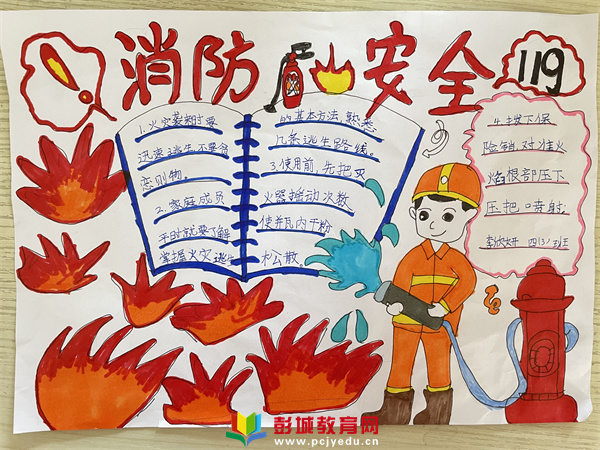 消防安全
119
1.火灾袭来时要
迅速逃生不要贪
恋财物。
2.家庭成员
平时就要了解
掌握火灾逃生
的基本方法,熟悉
几条逃生路线。
3.使用前,先把灭
火器摇动次数
使井瓦内干粉
松散。
4.拔下保
险销,对准火
焰根部压下
压把喷射,
四(3)班
彭城教育网
www.pcjyedu.cn